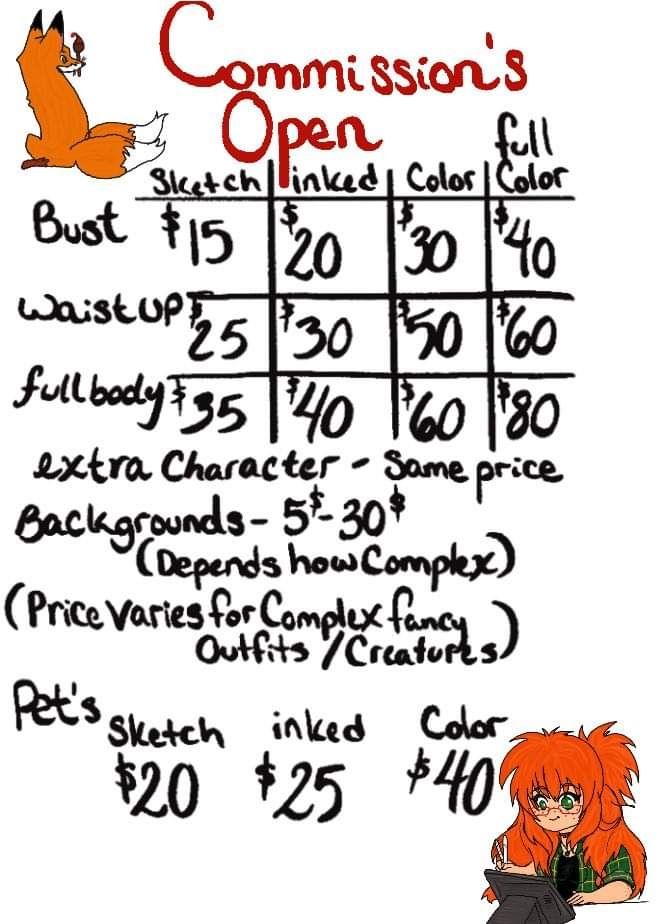 Commission's
Open
Sketch inked Color full Color
Bust $15 $20 $30 $40
Waist UP $25 $30 $50 $60
full body $35 $40 $60 $80
extra Character - Same price
Backgrounds - 5$-30$
(Depends how Complex)
(Price Varies for Complex fancy
Outfits / Creatures)
Pet's
Sketch inked Color
$20 $25 $40